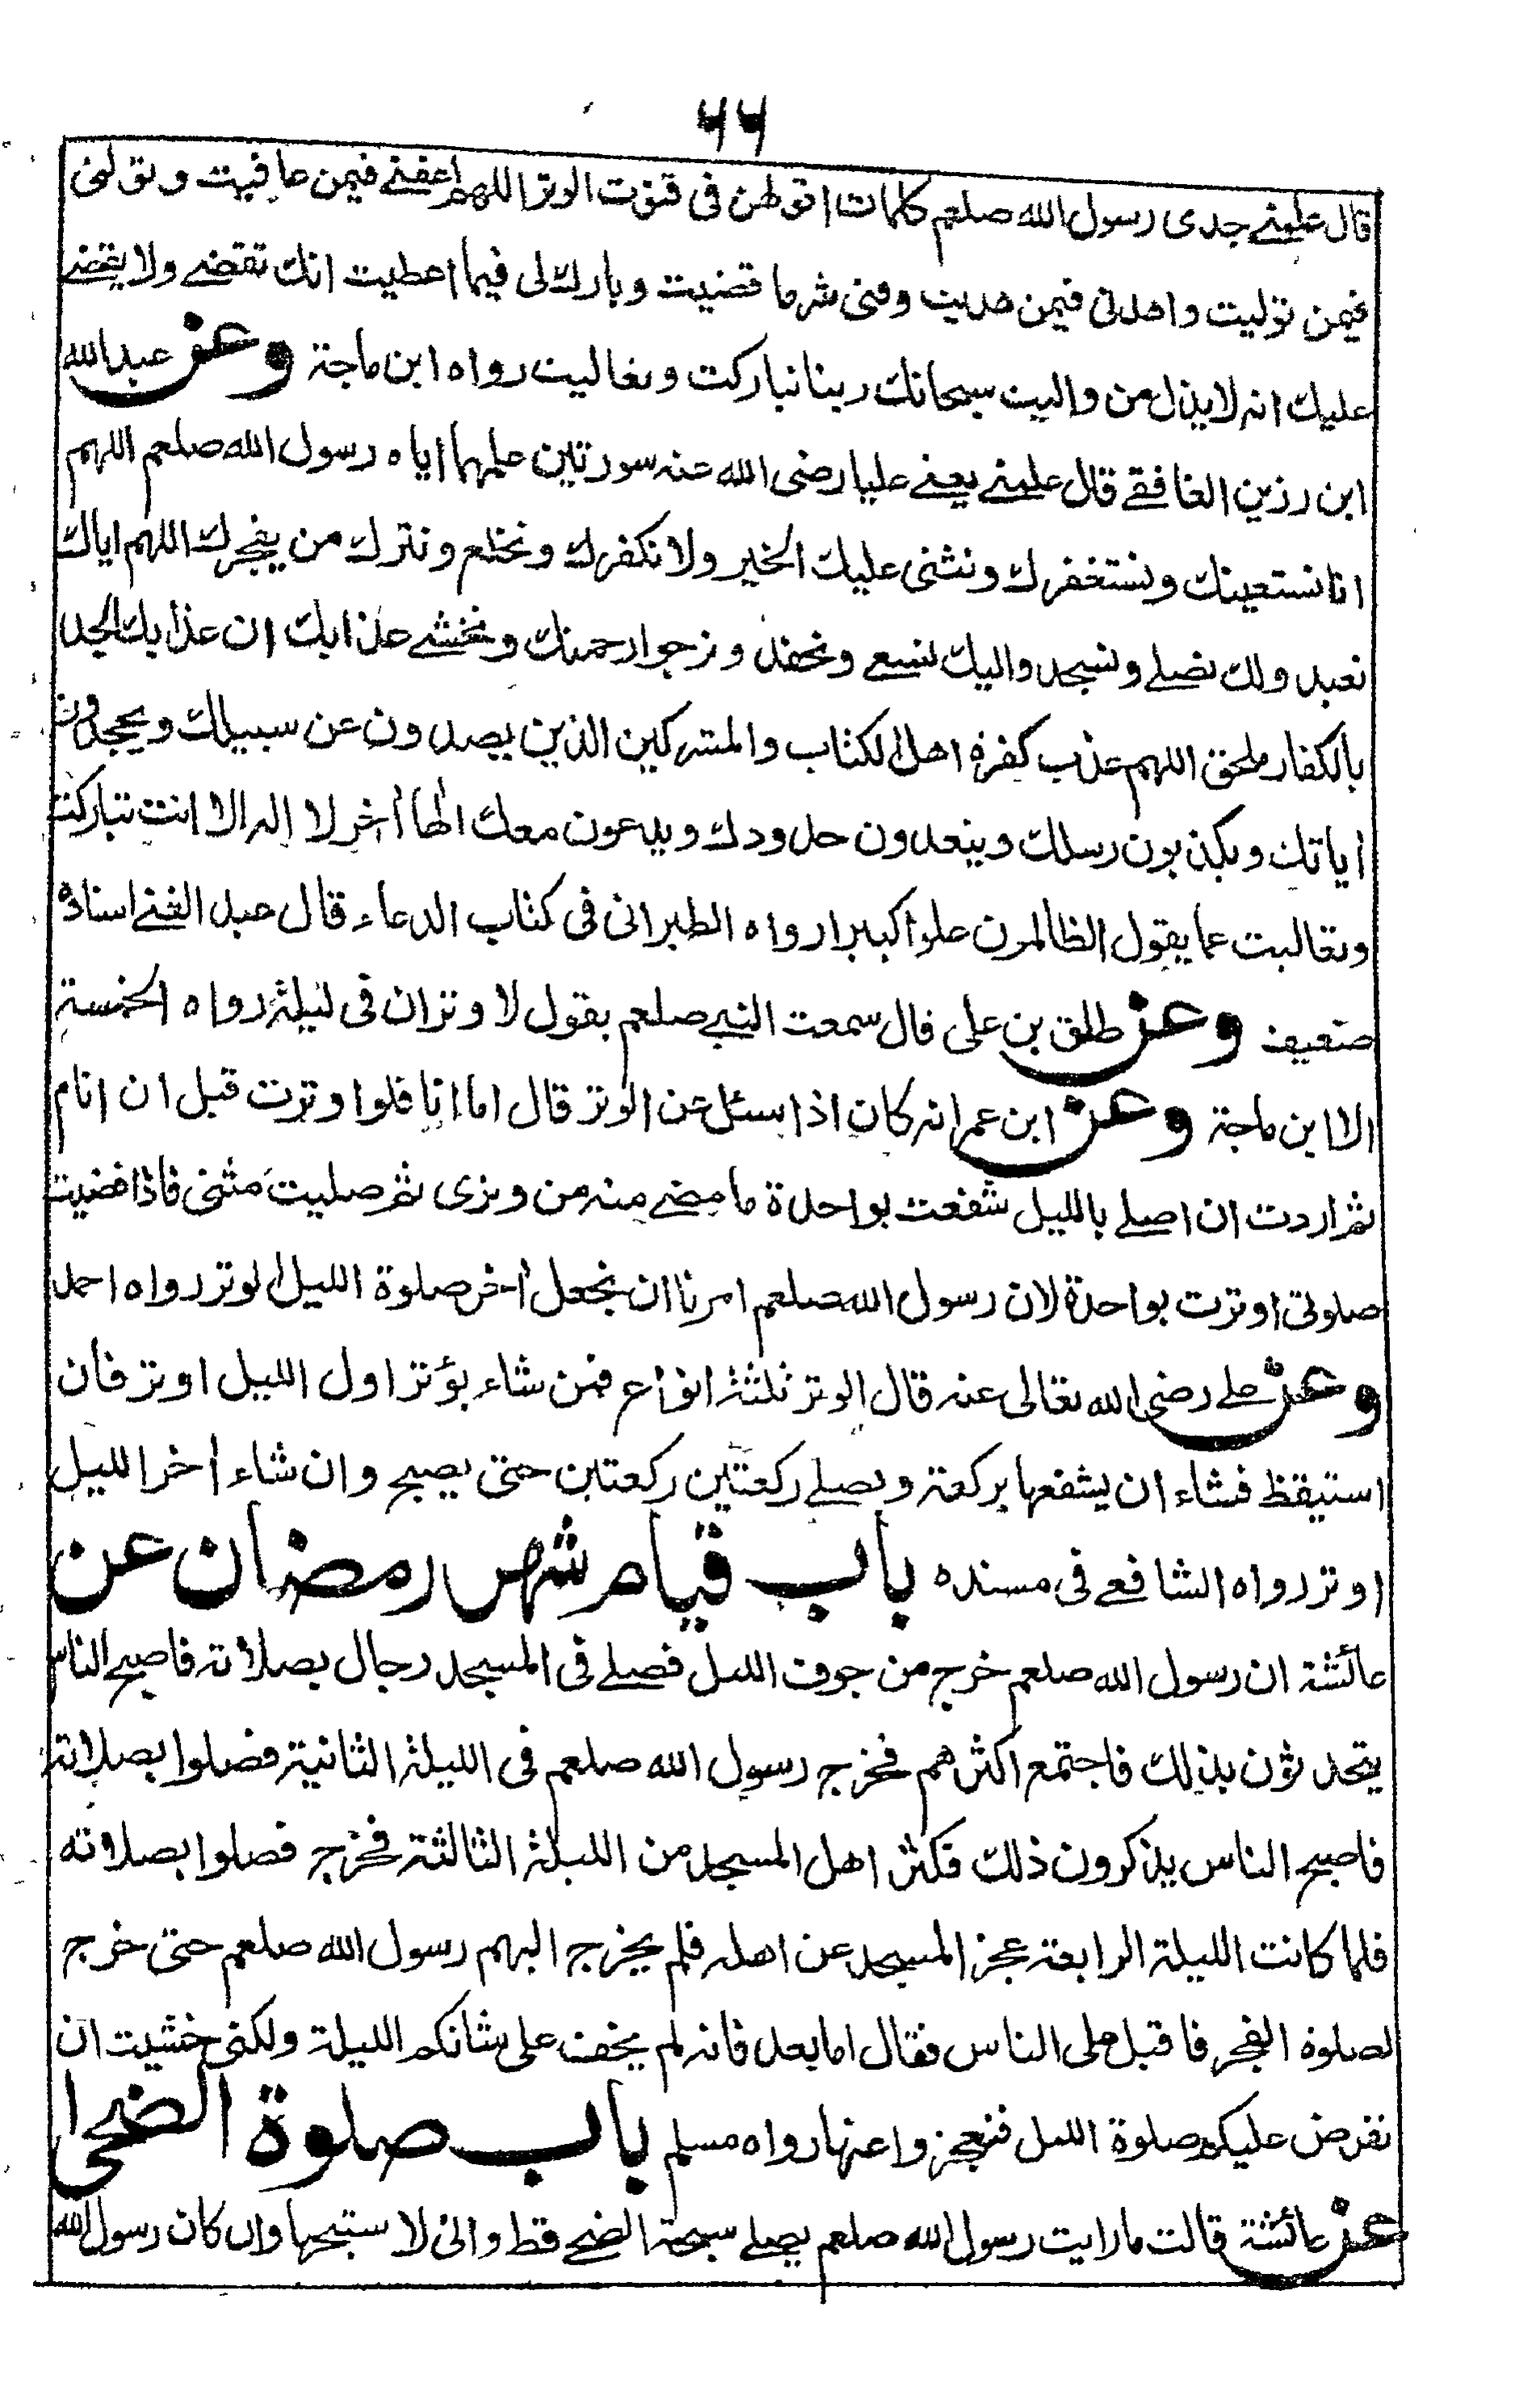 ۶۶
قال علمنے جدی رسول الله صلعم كلمات اقولهن فی قنوت الوتر اللهم اعفنے فیمن عافیت وتولنی
فیمن تولیت واهدنی فیمن هدیت وقنی شر ما قضیت وبارك لی فیما اعطیت انك تقضے ولا یقضے
علیك انه لا یذل من والیت سبحانك ربنا تباركت وتعالیت رواه ابن ماجة وعن عبد الله
ابن رزین الغافقے قال علمنے یعنے علیا رضی الله عنه سورتین علمهما ایاه رسول الله صلعم اللهم
انا نستعینك ونستغفرك ونثنی علیك الخیر ولا نكفرك ونخلع ونترك من یفجرك اللهم ایاك
نعبد ولك نصلے ونسجد والیك نسعے ونحفد ونرجوا رحمتك ونخشے عذابك ان عذابك الجد
بالكفار ملحق اللهم عذب كفرة اهل الكتاب والمشركین الذین یصدون عن سبیلك ویجحدون
ایاتك ویكذبون رسلك ویتعدون حدودك ویدعون معك الٰها أخر لا اله الا انت تباركت
وتعالیت عما یقول الظالمون علوا كبیرا رواه الطبرانی فی كتاب الدعاء قال عبد الغنے اسناده
ضعیف وعن طلق بن علی قال سمعت النبے صلعم یقول لا وتران فی لیلة رواه الخمسة
الا ابن ماجة وعن ابن عمر انه كان اذا سئل عن الوتر قال اما انا فلو اوترت قبل ان انام
ثم اردت ان اصلے باللیل شفعت بواحدة ما مضے منه من وتری ثم صلیت مثنی فاذا قضیت
صلوتی اوترت بواحدة لان رسول الله صلعم امرنا ان نجعل أخر صلوة اللیل الوتر رواه احمد
وعن علے رضی الله تعالی عنه قال الوتر ثلثة انواع فمن شاء یؤتر اول اللیل اوتر فان
استیقظ فشاء ان یشفعها بركعة ویصلے ركعتین ركعتین حتی یصبح وان شاء أخر اللیل
اوتر رواه الشافعے فی مسنده باب قیام شهر رمضان عن
عائشة ان رسول الله صلعم خرج من جوف اللیل فصلے فی المسجد رجال بصلاته فاصبح الناس
یتحدثون بذلك فاجتمع اكثرهم فخرج رسول الله صلعم فی اللیلة الثانیة فصلوا بصلاته
فاصبح الناس یذكرون ذلك فكثر اهل المسجد من اللیلة الثالثة فخرج فصلوا بصلاته
فلما كانت اللیلة الرابعة عجز المسجد عن اهله فلم یخرج الیهم رسول الله صلعم حتی خرج
لصلوة الفجر فاقبل علی الناس فقال اما بعد فانه لم یخف علی شانكم اللیلة ولكنی خشیت ان
تفرض علیكم صلوة اللیل فتعجزوا عنها رواه مسلم باب صلوة الضحیٰ
عن عائشة قالت ما رایت رسول الله صلعم یصلے سبحة الضحے قط وانی لا سبحها وان كان رسول الله